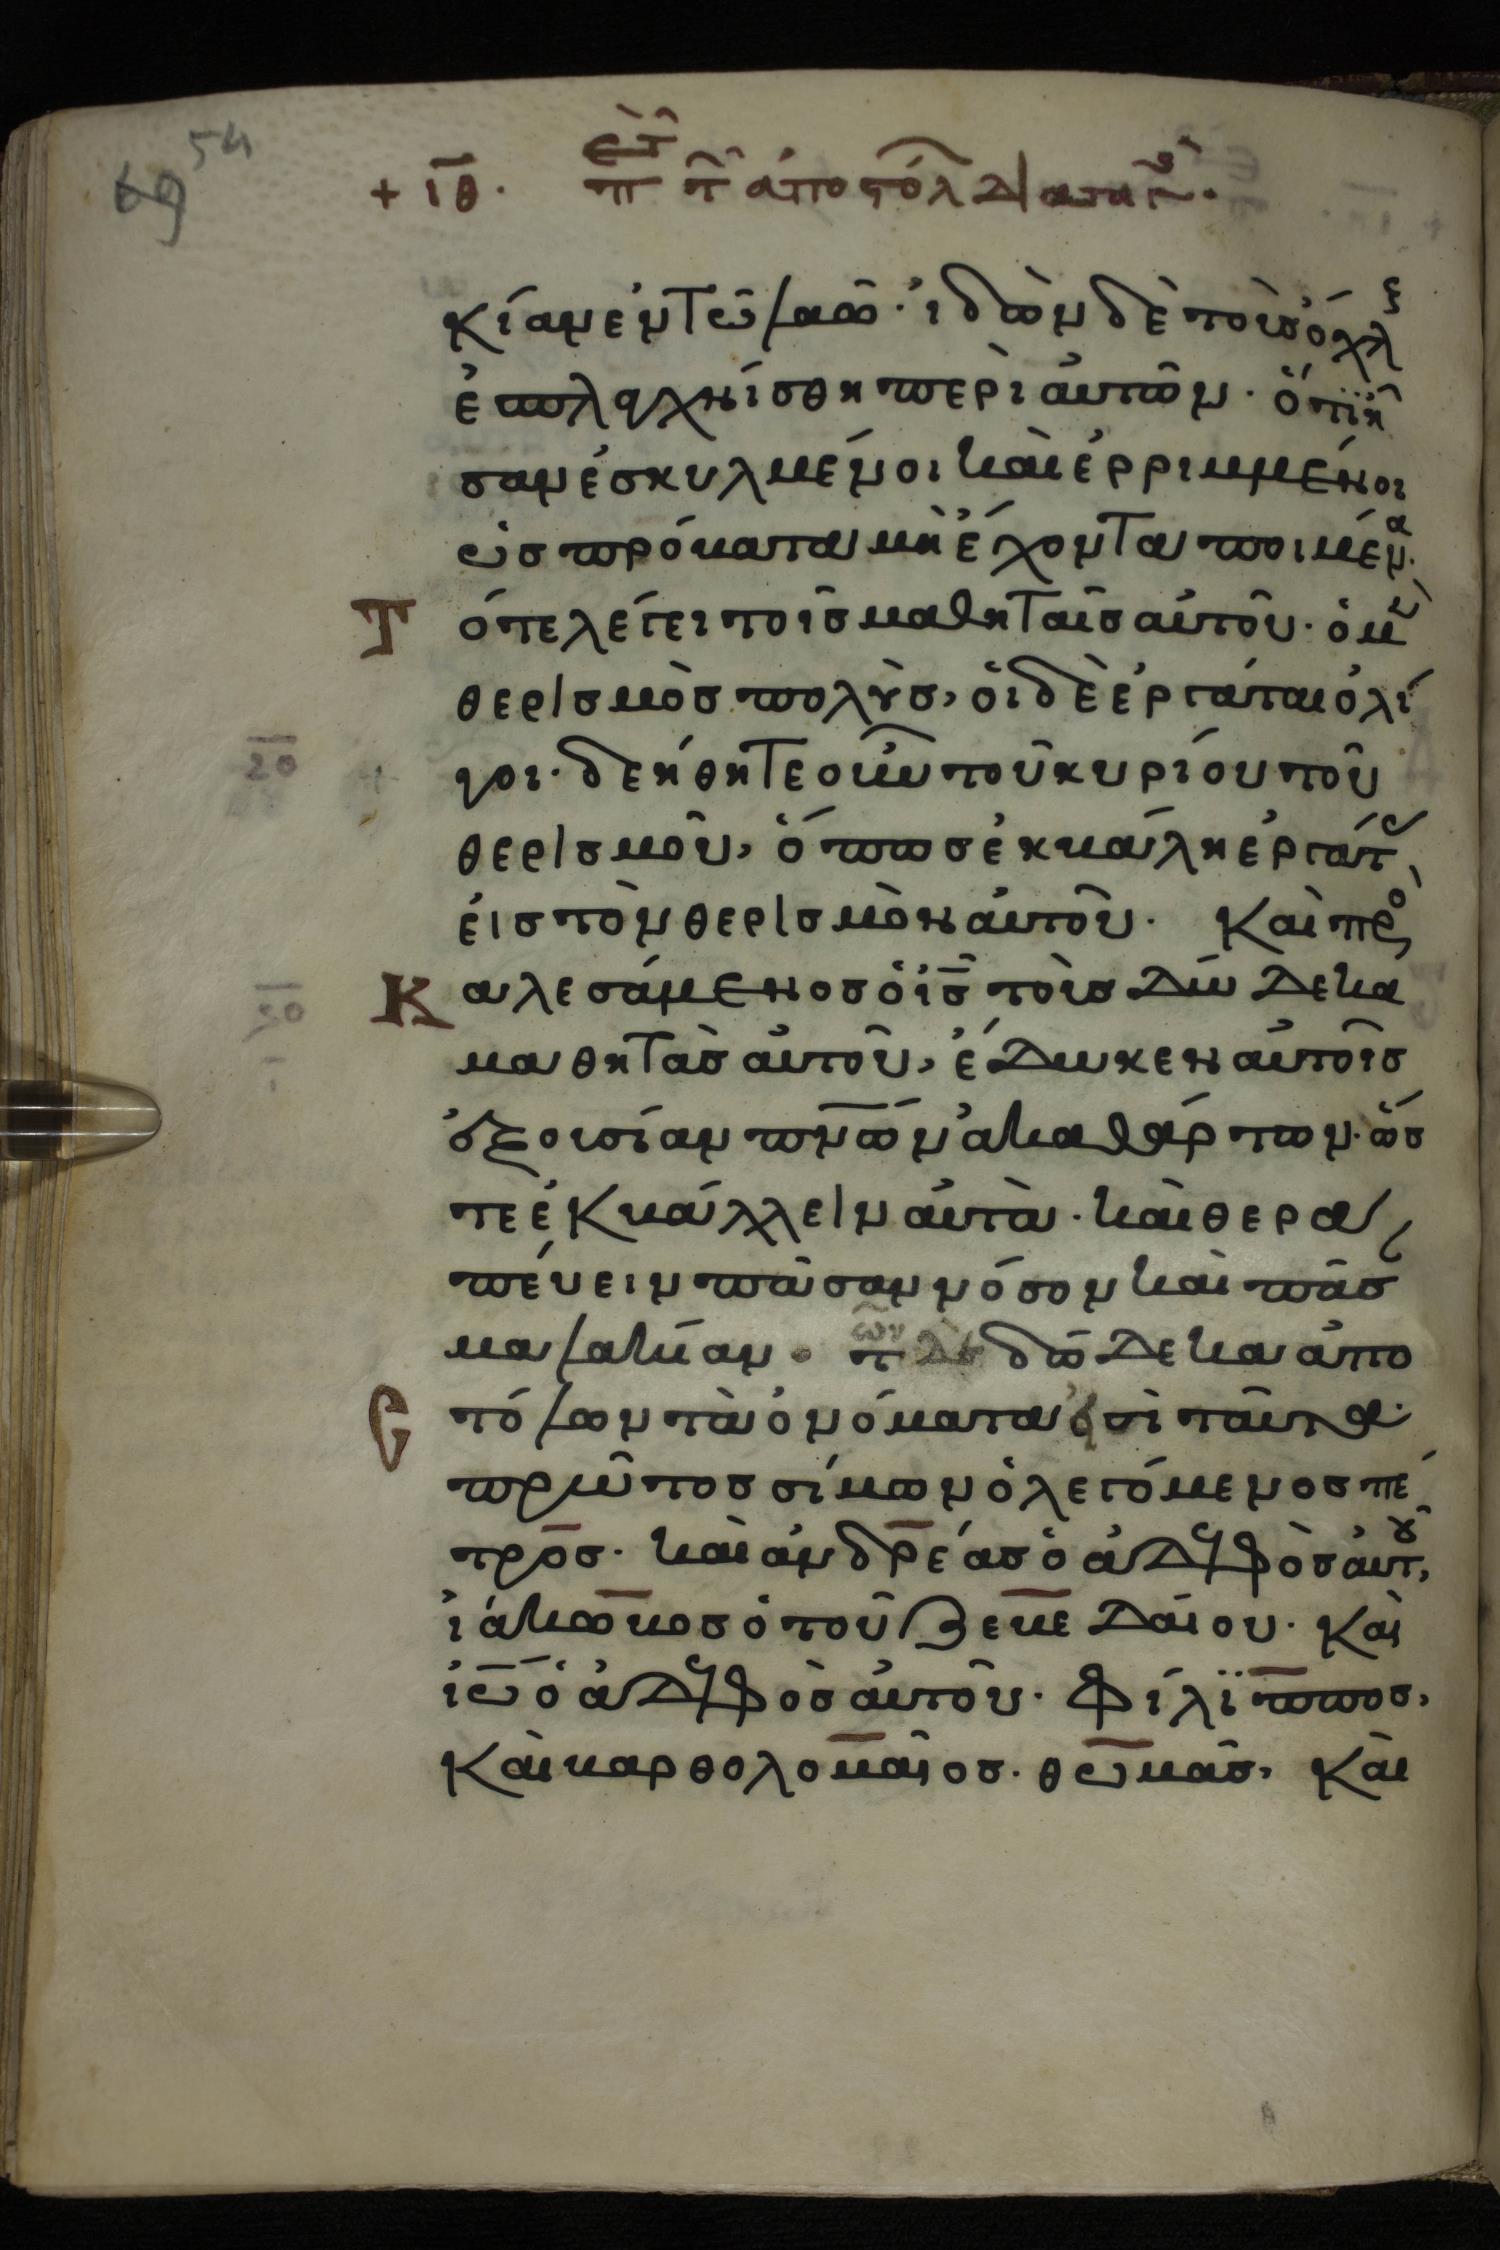 69 54
+ ιθ. π τ ἀποστόλ διατα
κίαν ἐν τῶ λαῶ· ἰδὼν δὲ τοὺς ὄχλ
ἐσπλαγχνίσθη περὶ αὐτῶν· ὅτι ἦ
σαν ἐσκυλμένοι καὶ ἐρριμμένοι
ὡς πρόβατα μὴ ἔχοντα ποιμένα·
Τ ότε λέγει τοῖς μαθηταῖς αὐτοῦ· ὁ μ
θερισμὸς πολὺς, οἱ δὲ ἐργάται ὀλί
γοι· δεήθητε οὖν τοῦ κυρίου τοῦ
θερισμοῦ, ὅπως ἐκβάλη ἐργάτ
εἰς τὸν θερισμὸν αὐτοῦ· Καὶ προ
Κ αλεσάμενος ὁ ις τοὺς δώδεκα
μαθητὰς αὐτοῦ, ἔδωκεν αὐτοῖς
ἐξουσίαν πνων ἀκαθάρτων· ὥσ
τε ἐκβάλλειν αὐτὰ· καὶ θερα
πεύειν πᾶσαν νόσον καὶ πᾶσ
μαλακίαν· τῶν δὲ δώδεκα ἀπο
στόλων τὰ ὀνόματα ἐστὶ ταῦτα·
πρῶτος σίμων ὁ λεγόμενος πέ
τρος· καὶ ἀνδρέας ὁ ἀδελφὸς αὐτου,
ἰάκωβος ὁ τοῦ ζεβεδαίου· καὶ
ἰω ὁ ἀδελφὸς αὐτοῦ· φίλϊππος,
καὶ βαρθολομαῖος· θωμᾶς, καὶ